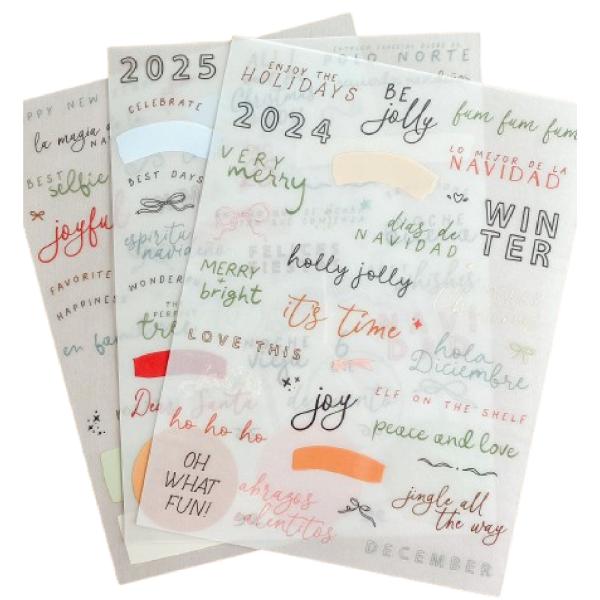 ENJOY THE
HOLIDAYS
BE
jolly
fum fum fum
2024
LO MEJOR DE LA
NAVIDAD
VERY
merry
WIN
TER
días de
NAVIDAD
holly jolly
MERRY
+
bright
it's time
hola
Diciembre
LOVE THIS
ELF ON THE SHELF
joy
peace and love
ho ho ho
OH
WHAT
FUN!
abrazos
calentitos
jingle all
the way
DECEMBER
2025
CELEBRATE
BEST DAYS
espíritu
navideño
WONDER
THE
PERFECT
tre
Dear Santa
POLO NORTE
FELICES
PPY NEW
la magia d
NA
BEST
selfie
joyfu
FAVORITE
HAPPINES
en fam